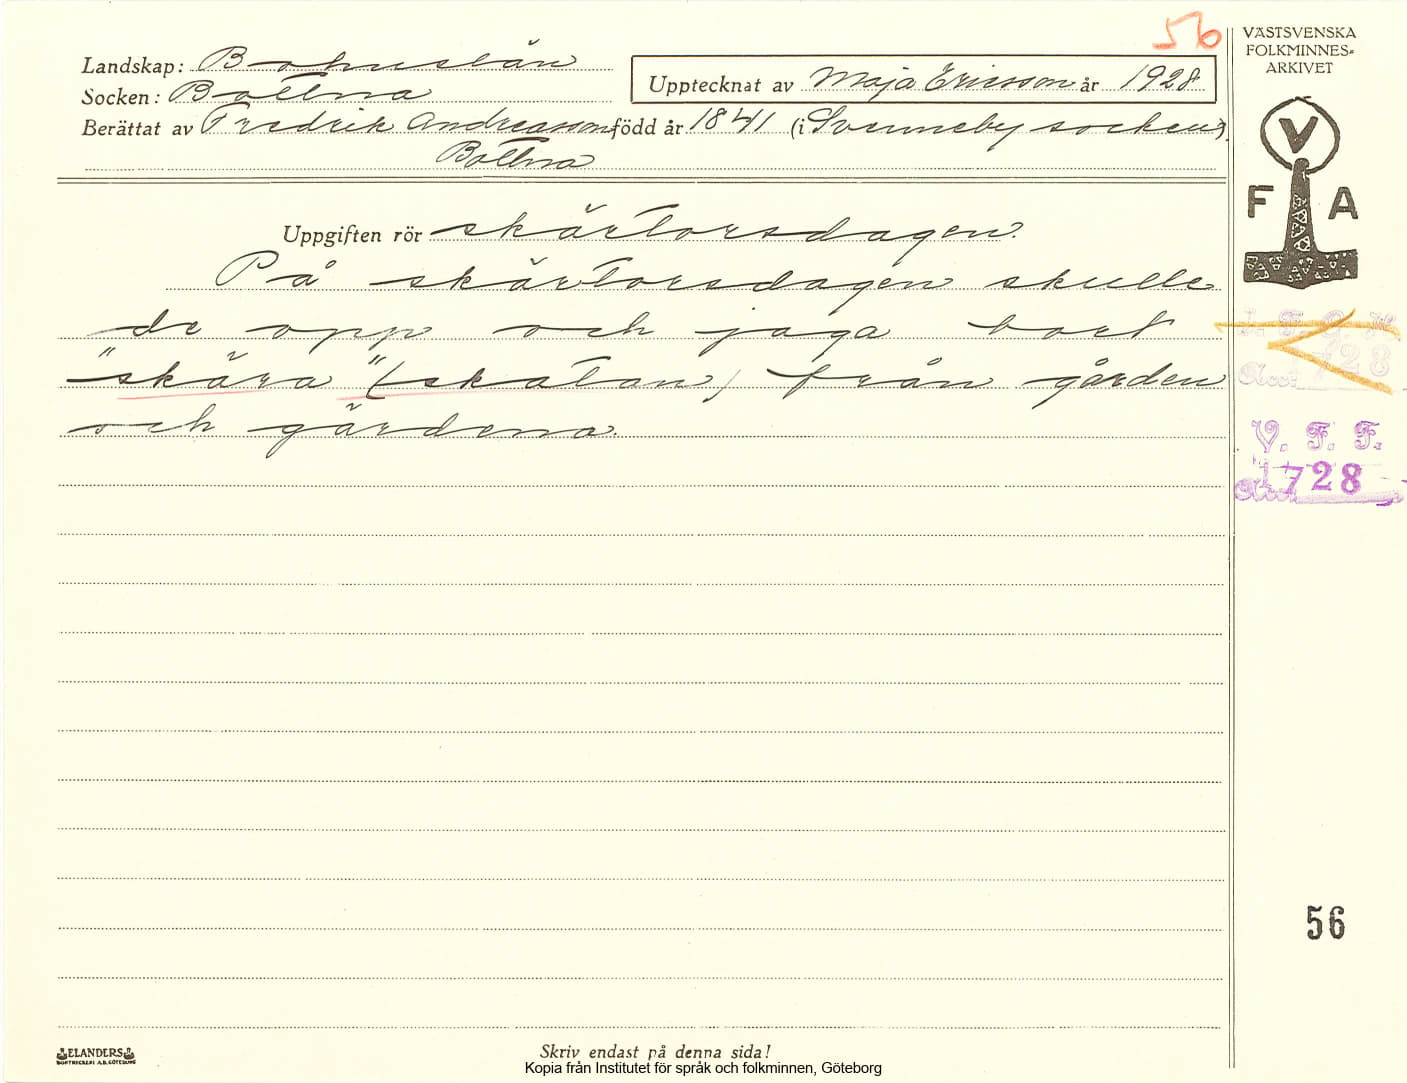 56
VÄSTSVENSKA
FOLKMINNES-
ARKIVET
Landskap: Bohuslän
Upptecknat av Maja Ericsson år 1928
Socken: Bottna
Berättat av Fredrik Andreasson född år 1841 (i Svenneby socken)
Bottna
V
F A
Uppgiften rör skärtorsdagen.
På skärtorsdagen skulle
de opp och jaga bort
"skära" (skatan) från gården
och gärdena.
V. F. F.
Acc. 1728
56
ELANDERS
BOKTRYCKERI A.B. GÖTEBORG
Skriv endast på denna sida!
Kopia från Institutet för språk och folkminnen, Göteborg